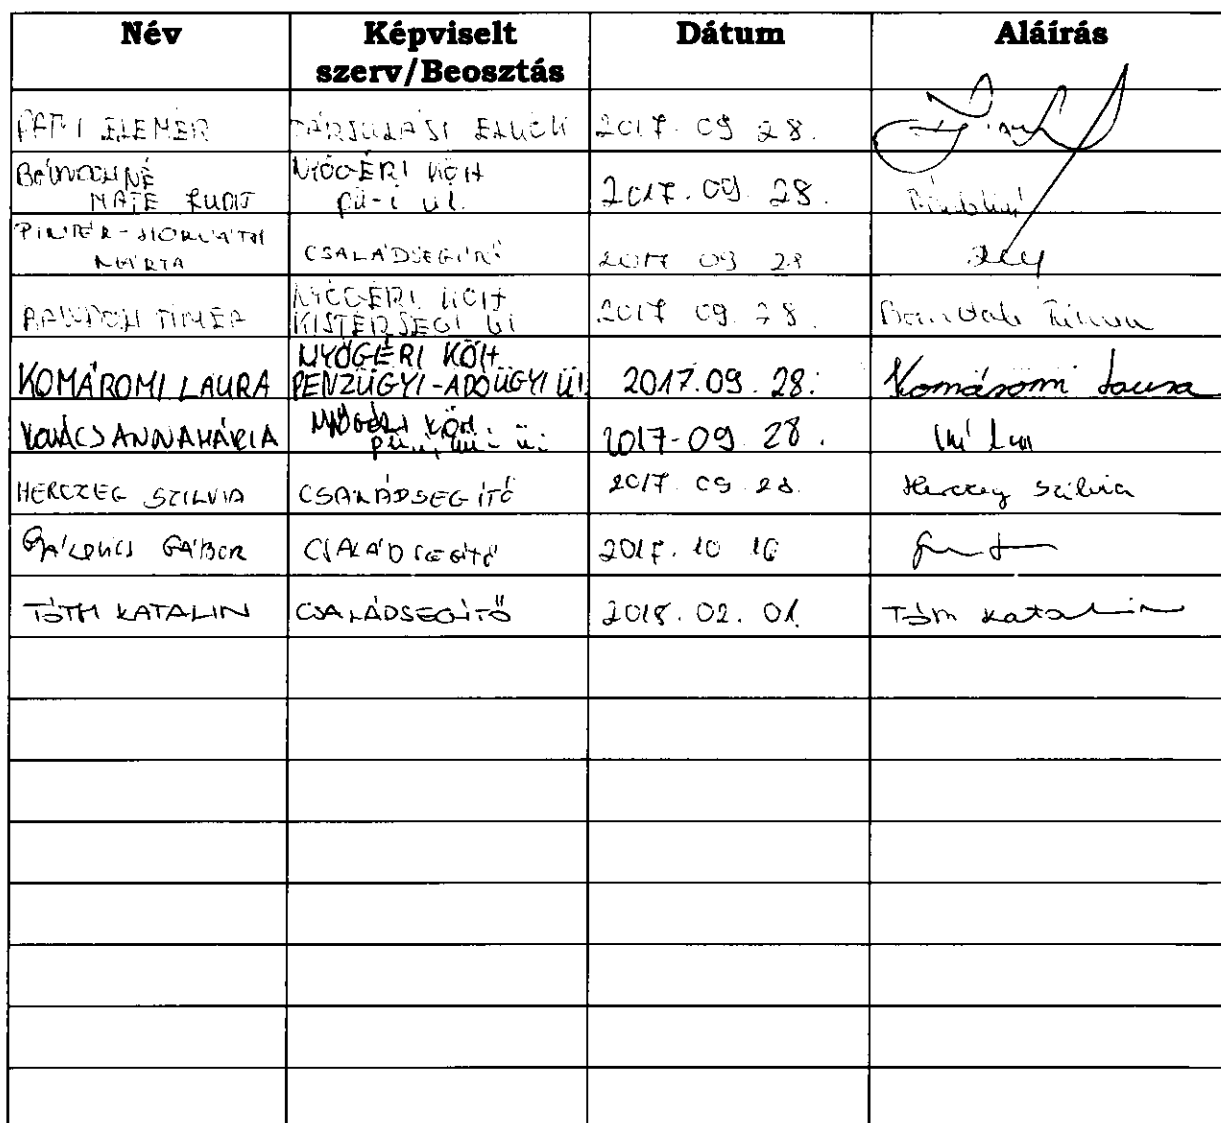 Név Képviselt szerv/Beosztás Dátum Aláírás
ELEMÉR TÁRSULÁSI ELNÖK 2017. 09 28.
MÁTÉ JUDIT NYŐGÉRI KÖH pü-i üi. 2017. 09. 28.
PINTÉR-HORVÁTH MÁRTA CSALÁDSEGÍTŐ 2017 09 28
TÍMEA NYŐGÉRI KÖH KISTÉRSÉGI ÜI 2017 09. 28. Tímea
KOMÁROMI LAURA NYŐGÉRI KÖH PÉNZÜGYI-ADÓÜGYI ÜI 2017.09.28. Komáromi Laura
KOVÁCS ANNAMÁRIA NYŐGÉRI KÖH. 2017-09. 28.
HERCZEG SZILVIA CSALÁDSEGÍTŐ 2017. 09 28. Herczeg Szilvia
GÁBOR CSALÁDSEGÍTŐ 2017. 10 16
TÓTH KATALIN CSALÁDSEGÍTŐ 2018. 02. 01. Tóth Katalin